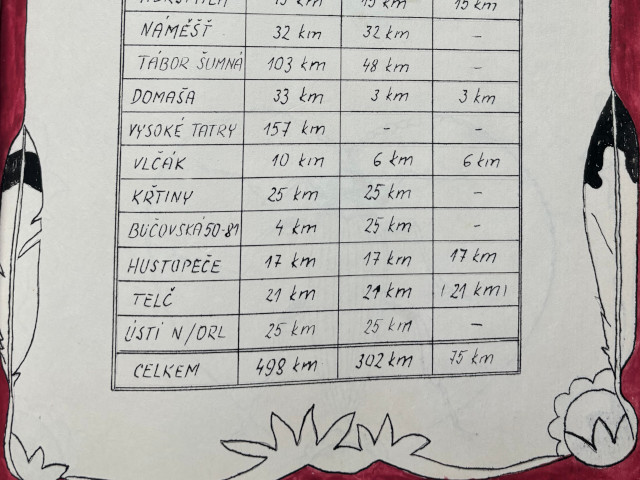 15 km 15 km 15 km
NÁMĚŠŤ 32 km 32 km –
TÁBOR ŠUMNÁ 103 km 48 km –
DOMAŠA 33 km 3 km 3 km
VYSOKÉ TATRY 157 km - -
VLČÁK 10 km 6 km 6 km
KŘTINY 25 km 25 km –
BUČOVSKÁ 50-81 4 km 25 km –
HUSTOPEČE 17 km 17 km 17 km
TELČ 21 km 21 km (21 km)
ÚSTÍ N/ORL 25 km 25 km –
CELKEM 498 km 302 km 75 km